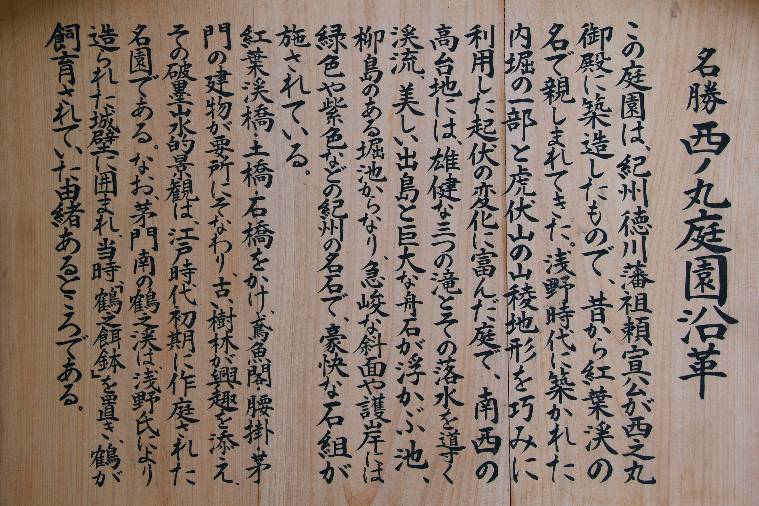 名勝 西ノ丸庭園沿革
この庭園は、紀州徳川藩祖頼宣公が西之丸
御殿に築造したもので、昔から紅葉渓の
名で親しまれてきた。浅野時代に築かれた
内堀の一部と虎伏山の山稜地形を巧みに
利用した起伏の変化に富んだ庭で、南西の
高台地には、雄健な三つの滝とその落水を導く
渓流、美しい出島と巨大な舟石が浮かぶ池、
柳島のある堀池からなり、急峻な斜面や護岸には
緑色や紫色などの紀州の名石で、豪快な石組が
施されている。
紅葉渓橋、土橋、石橋をかけ、鳶魚閣、腰掛、茅
門の建物が要所にそなわり、古、樹林が興趣を添え、
その破墨山水的景観は、江戸時代初期に作庭された
名園である。なお茅門南の鶴之渓は、浅野氏により
造られた城壁に囲まれ、当時「鶴之餌鉢」を置き、鶴が
飼育されていた由緒あるところである。